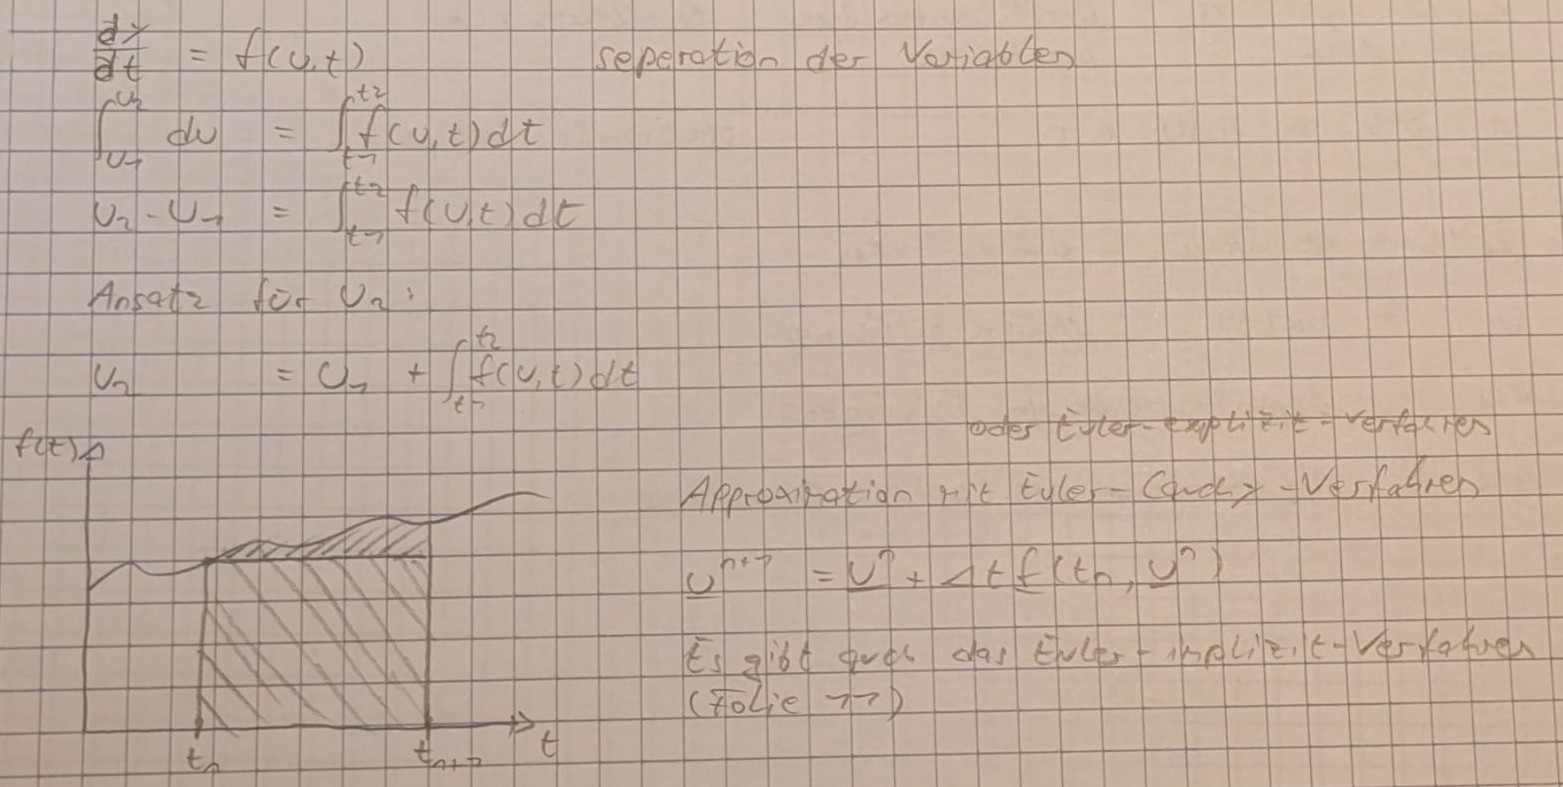 dy/dt = f(u,t) seperation der Variablen
∫_{u1}^{u2} du = ∫_{t1}^{t2} f(u,t)dt
u2 - u1 = ∫_{t1}^{t2} f(u,t)dt
Ansatz für u2:
u2 = u1 + ∫_{t1}^{t2} f(u,t)dt
oder Euler-explizit-verfahren
f(t)
Approximation mit Euler-Cauchy-Verfahren
u^{n+1} = u^n + Δt f(tn, u^n)
Es gibt auch das Euler-implizit-Verfahren
(Folie 11)
tn tn+1 t